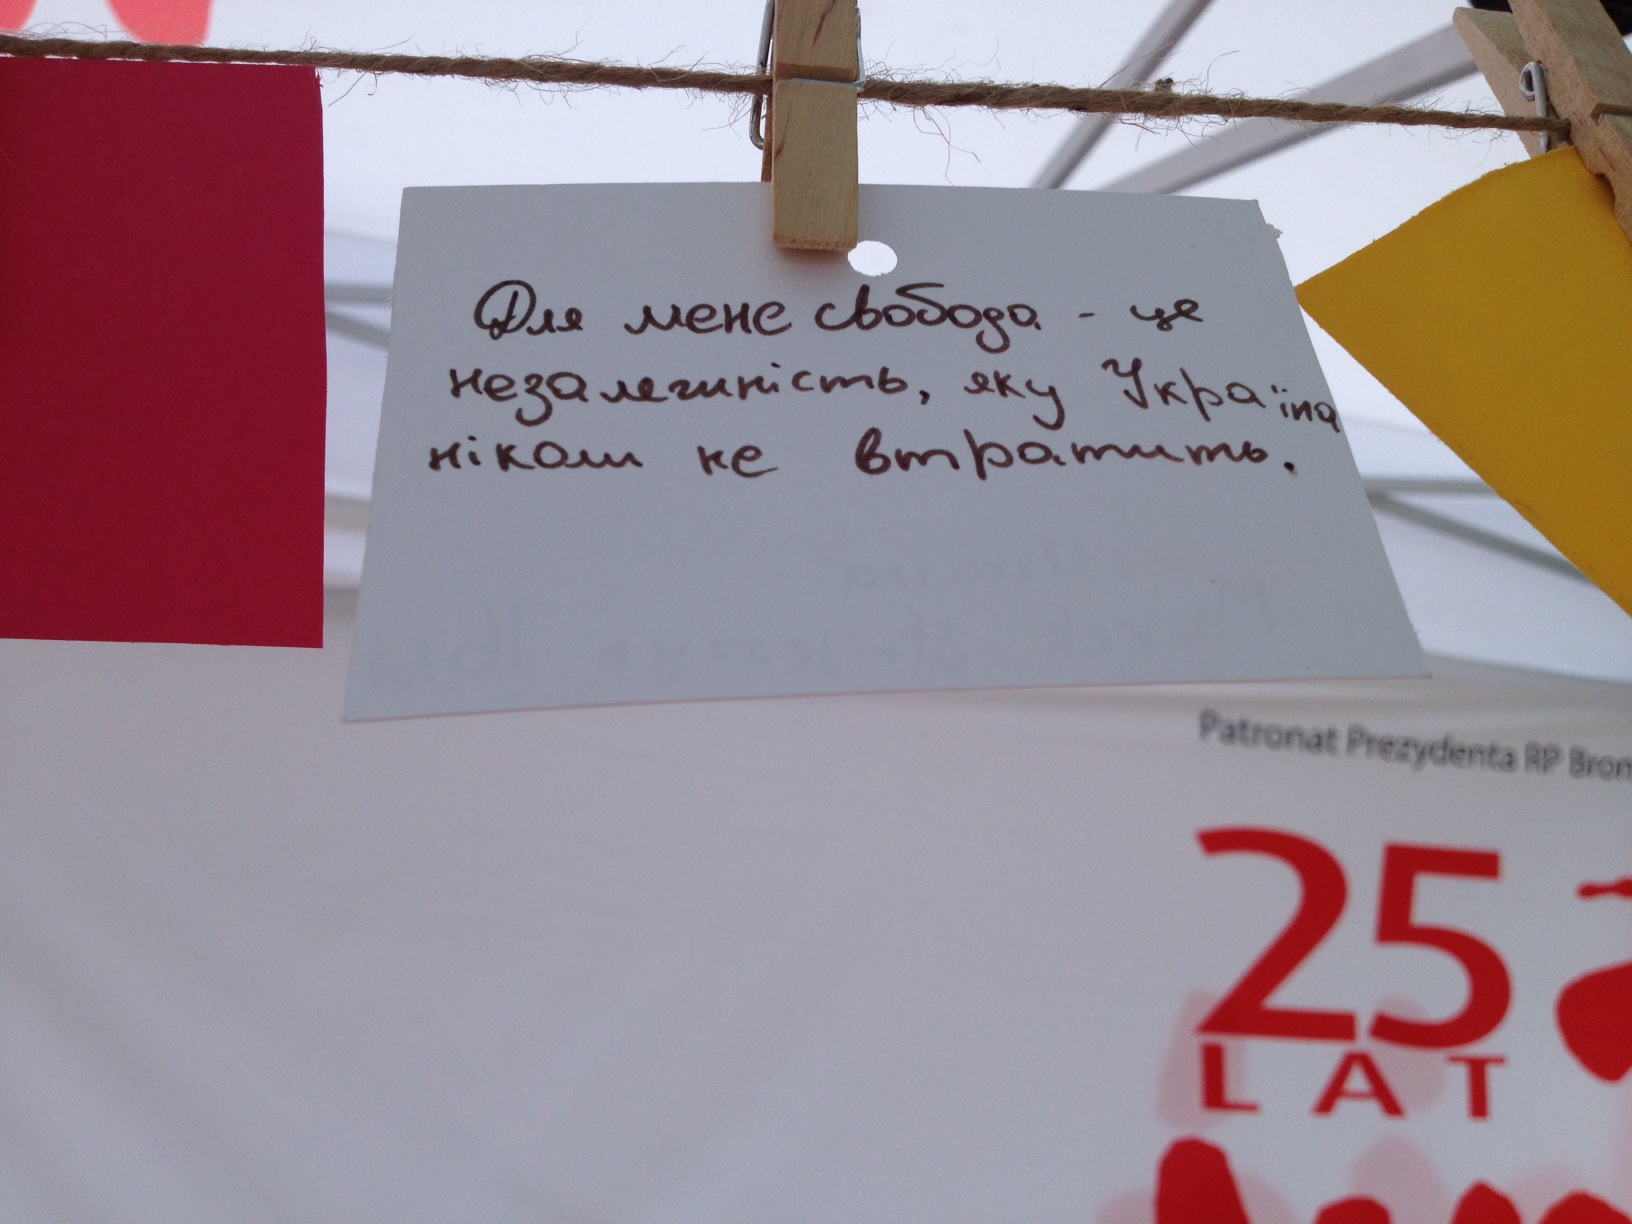 Для мене свобода - це
незалежність, яку Україна
ніколи не втратить.
Patronat Prezydenta RP Bron
25
LAT